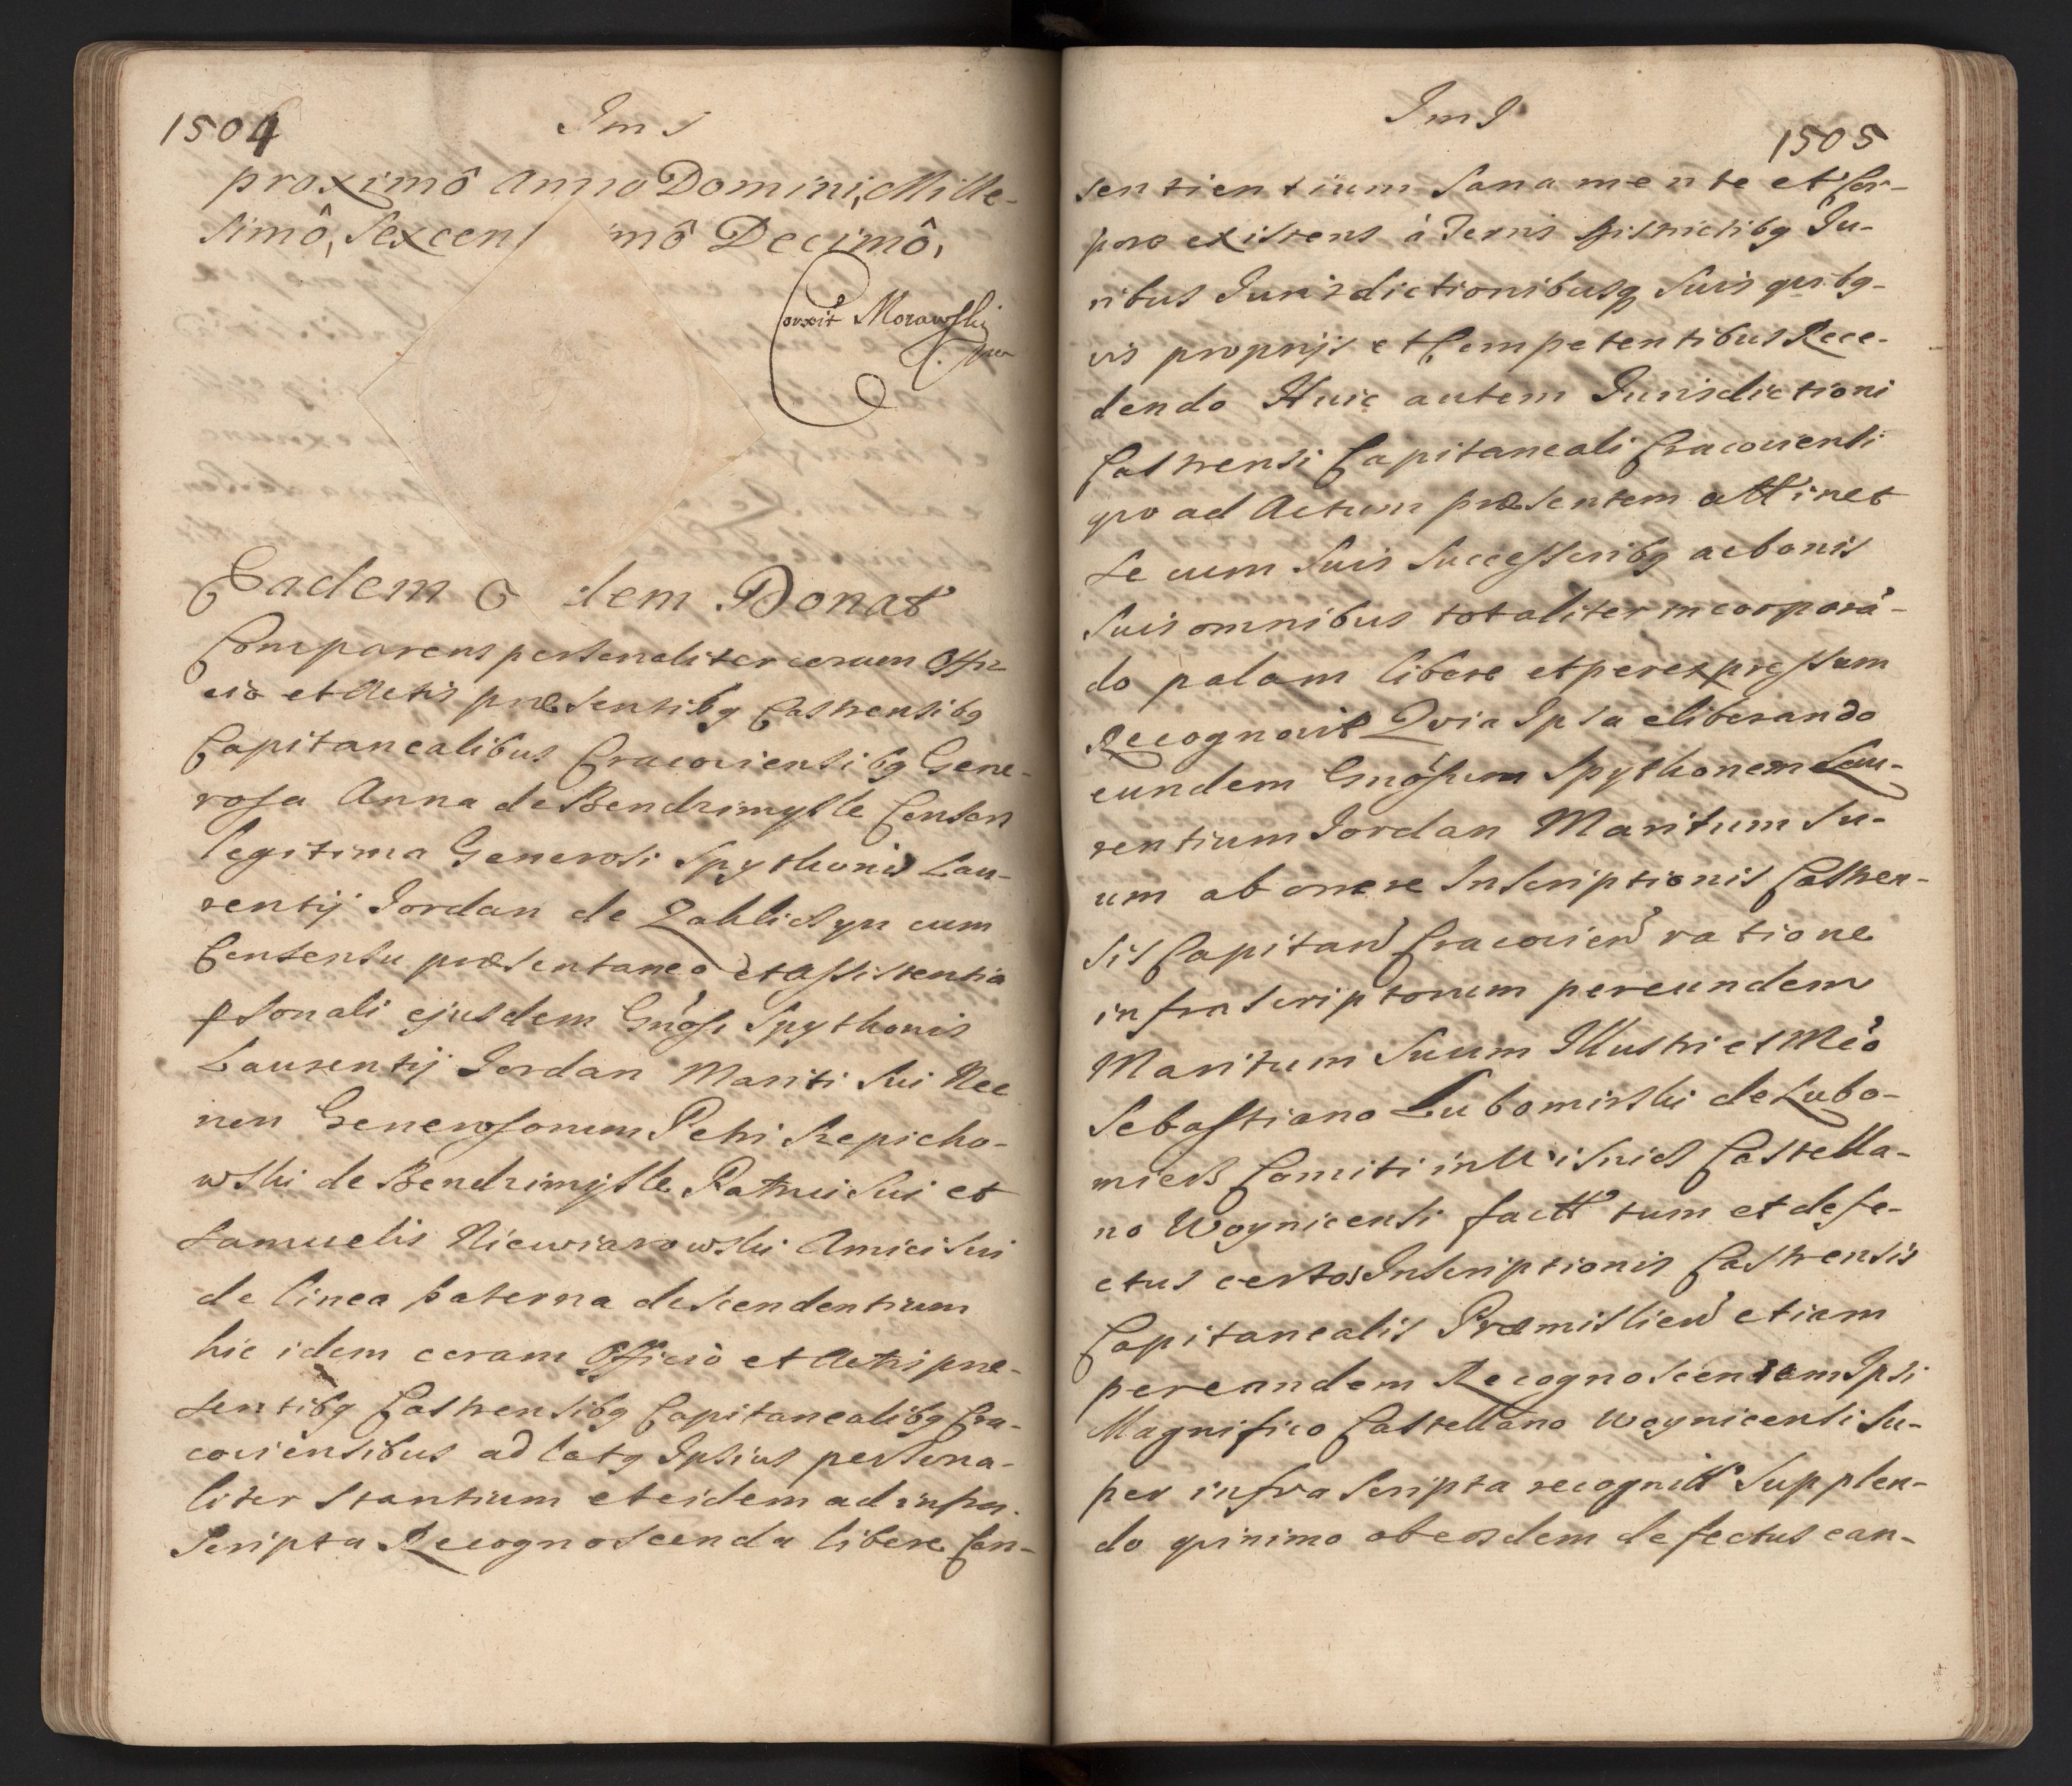 1504
Ims
proximô Anno Domini, Mille-
simô, Sexcent mô Decimô,
Corexit Morawski
mp
Eadem E dem Donat
Comparens personaliter coram Offi-
cio et Actis præsentibq Castrensibq
Capitanealibus Cracoviensibq Gene-
rosa Anna de Bendzimysle Consors
legitima Generosi Spythonis Lau-
rentij Jordan de Zakliczyn cum
Consensu præsentaneo et assistentia
psonali ejusdem Gnosi Spythonis
Laurentij Jordan Mariti sui Nec
non Generosorum Petri Rzepicho-
wski de Bendzimysle Patrui sui et
Samuelis Niewiarowski Amici sui
de linea paterna descendentium
hic idem coram Officio et Actis præ-
sentibq Castrensibq Capitanealibq Cra-
coviensibus ad latq Ipsius persona-
liter stantium et eidem ad infra
scripta Recognoscenda libere Con-
ImJ
1505
sentientium sana mente et Cor-
pore existens à Terris Districtibq Ju-
ribus Jurisdictionibusq suis quibq-
vis proprijs et Competentibus Rece-
dendo Huic autem Jurisdictioni
Castrensi Capitaneali Cracoviensi
quo ad Actum præsentem attinet
se cum suis successoribq ac bonis
suis omnibus totaliter incorporã-
do palam libere et per expressum
Recognovit Quia Ipsa eliberando
eundem Gnosum Spythonem Lau-
rentium Jordan Maritum su-
um ab onere Inscriptionis Castren-
sis Capitan Cracovien ratione
infrascriptorum per eundem
Maritum suum Illustri et Mco
Sebastiano Lubomirski de Lubo-
mierz Comiti in Wisnicz Castella-
no Woynicensi factt tum et defe-
ctus certos Inscriptionis Castrensis
Capitanealis Præmislien etiam
per eandem Recognoscentem Ipsi
Magnifico Castellano Woynicensi su-
per infra scripta recognitt supplen-
do quinimo ob eosdem defectus ean-